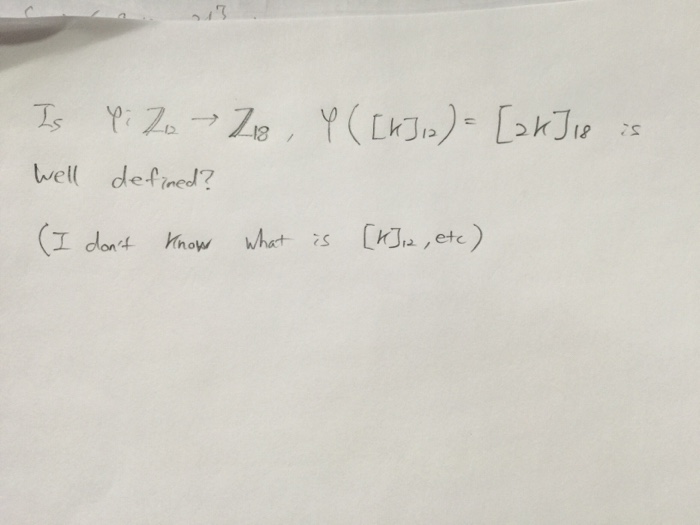 Is φ: ℤ₁₂ → ℤ₁₈, φ([k]₁₂) = [2k]₁₈ is
well defined?
(I don't know what is [k]₁₂, etc)